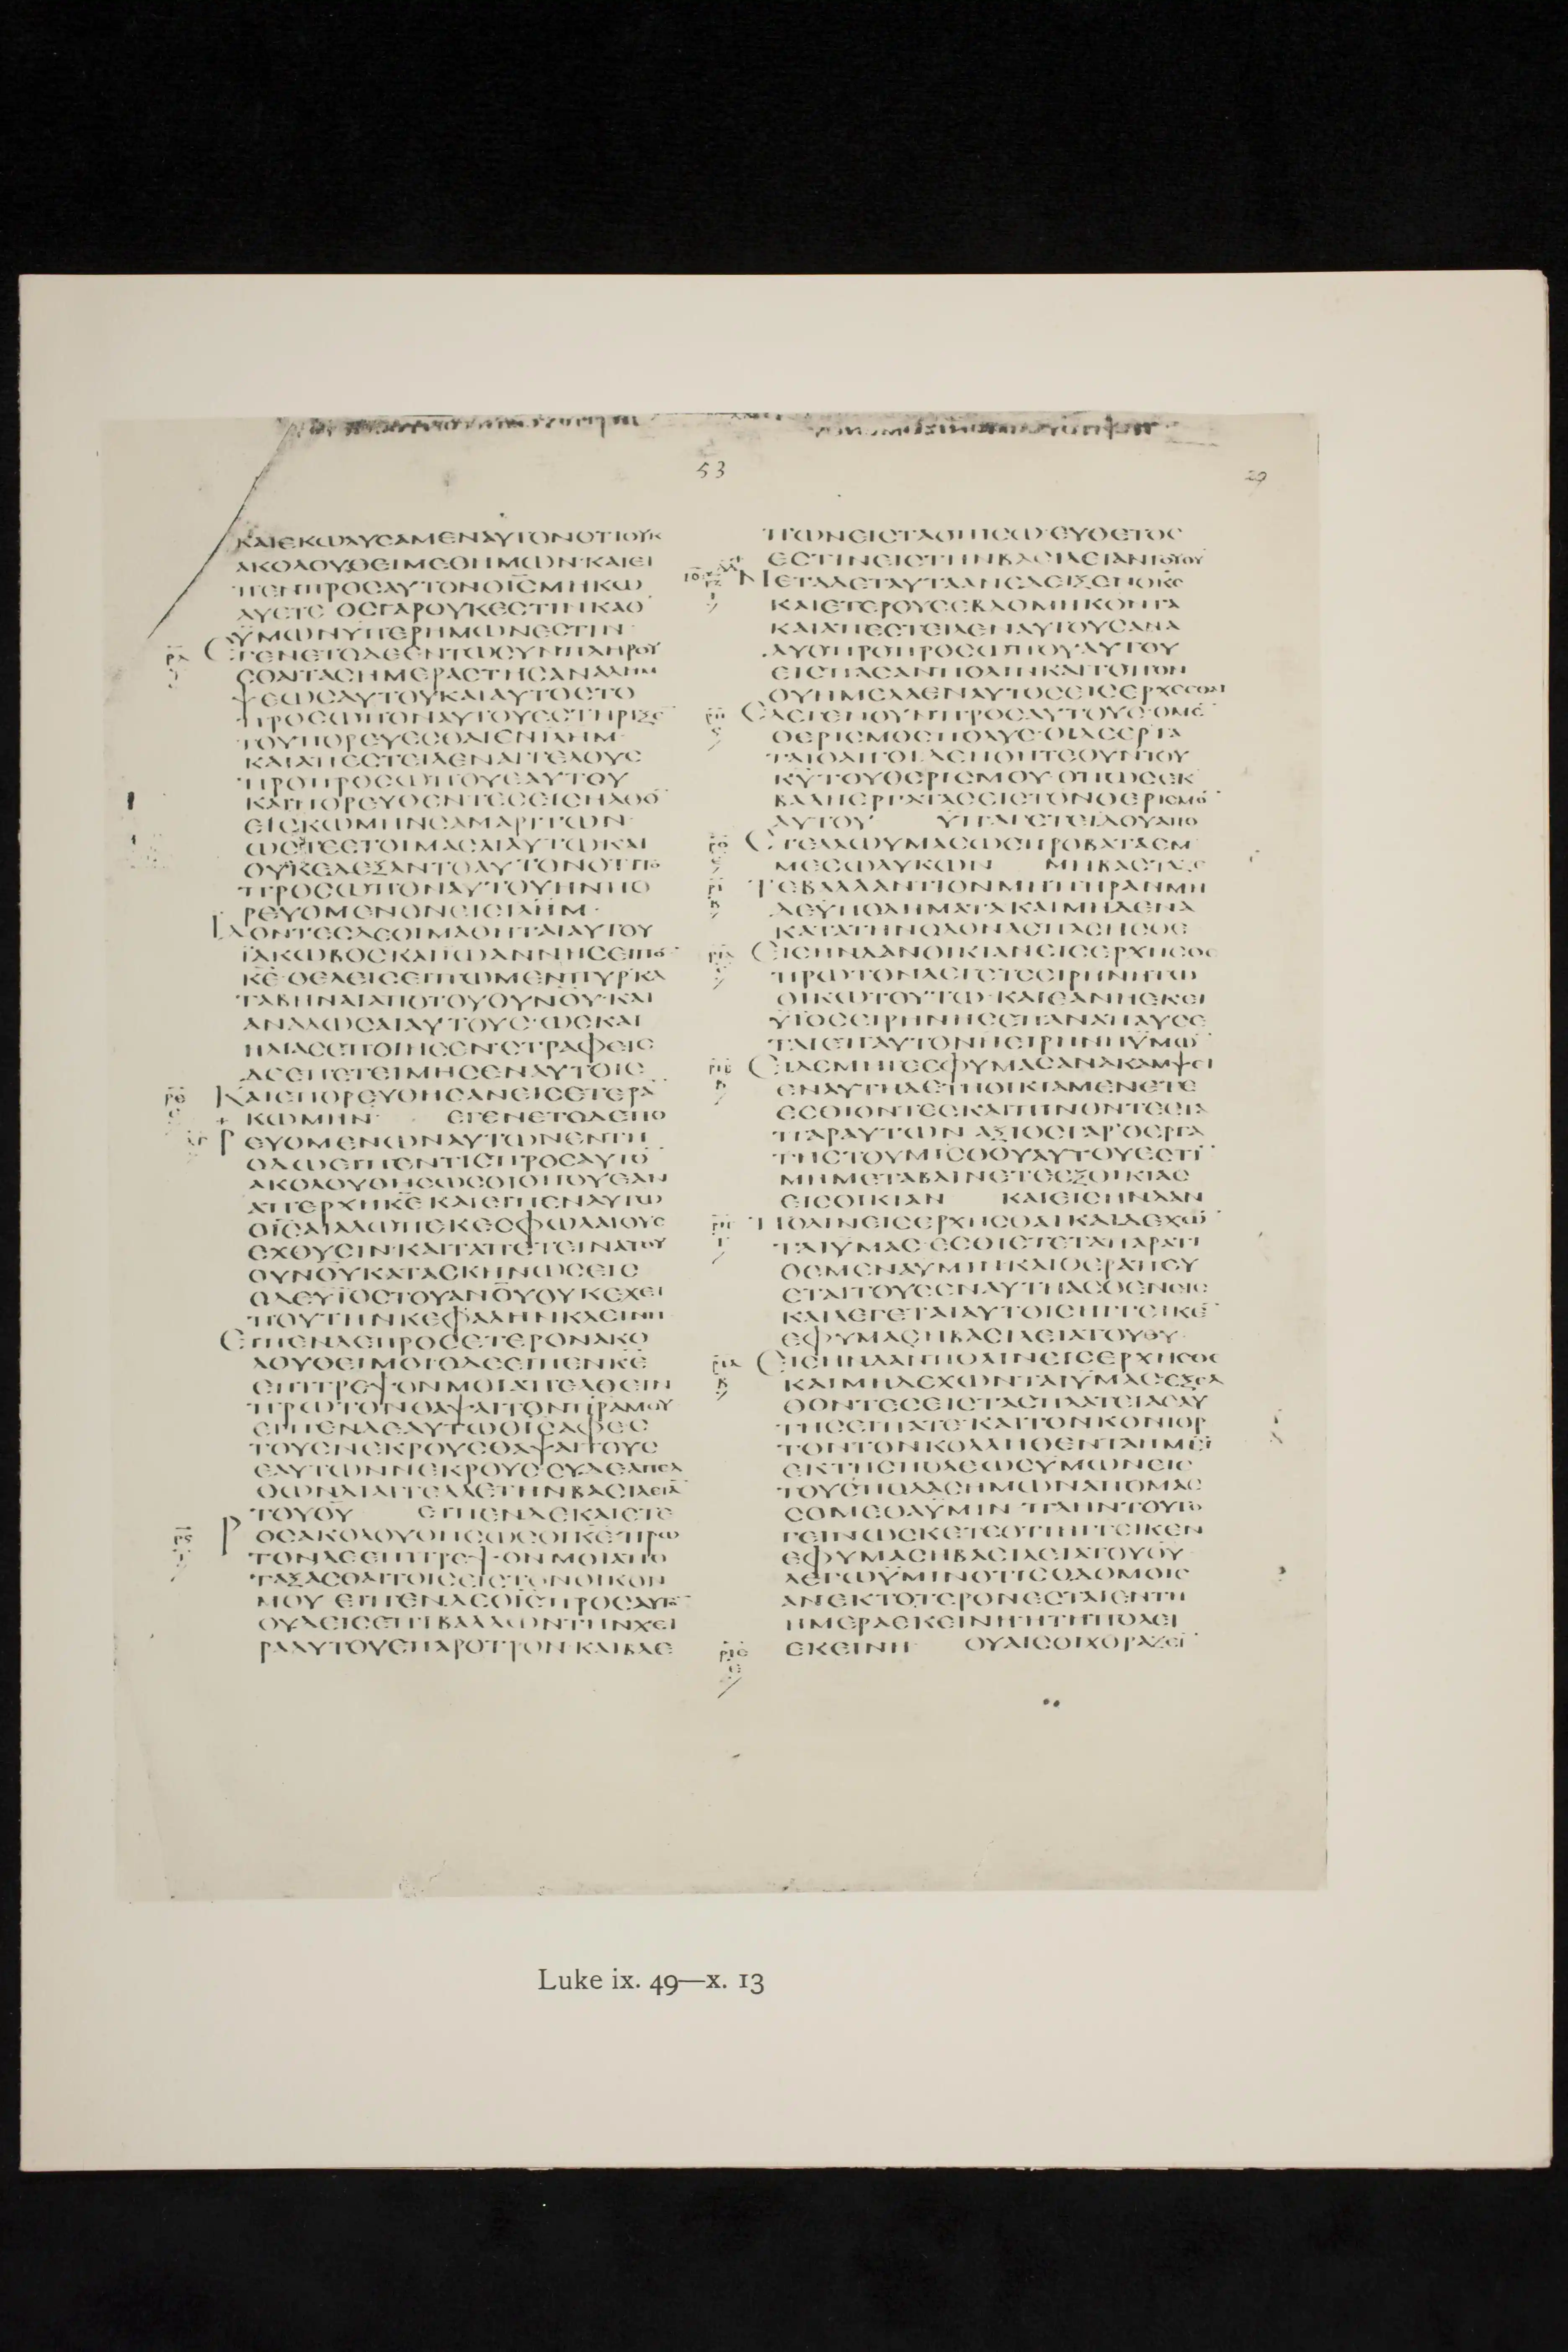 53
29
ΚΑΙΕΚΩΛΥϹΑΜΕΝΑΥΤΟΝΟΤΙΟΥΚ
ΑΚΟΛΟΥΘΕΙΜΕΘΗΜΩΝ·ΚΑΙΕΙ
ΠΕΝΠΡΟϹΑΥΤΟΝΟΙ̅Ϲ̅ΜΗΚΩ
ΛΥΕΤΕ ΟϹΓΑΡΟΥΚΕϹΤΙΝΚΑΘ
ΫΜΩΝΥΠΕΡΗΜΩΝΕϹΤΙΝ
ΕΓΕΝΕΤΟΔΕΕΝΤΩϹΥΝΠΛΗΡΟΥ
ϹΘΑΙΤΑϹΗΜΕΡΑϹΤΗϹΑΝΑΛΗΜ
ΨΕΩϹΑΥΤΟΥΚΑΙΑΥΤΟϹΤΟ
ΠΡΟϹΩΠΟΝΑΥΤΟΥΕϹΤΗΡΙΞΕ
ΤΟΥΠΟΡΕΥΕϹΘΑΙΕΝΙΛΗΜ·
ΚΑΙΑΠΕϹΤΕΙΛΕΝΑΓΓΕΛΟΥϹ
ΠΡΟΠΡΟϹΩΠΟΥΕΑΥΤΟΥ
ΚΑΙΠΟΡΕΥΘΕΝΤΕϹΕΙϹΗΛΘΟ̅
ΕΙϹΚΩΜΗΝϹΑΜΑΡΙΤΩΝ·
ΩϹΤΕΕΤΟΙΜΑϹΑΙΑΥΤΩΚΑΙ
ΟΥΚΕΔΕΞΑΝΤΟΑΥΤΟΝΟΤΙΤΟ
ΠΡΟϹΩΠΟΝΑΥΤΟΥΗΝΠΟ
ΡΕΥΟΜΕΝΟΝΕΙϹΙΛΗΜ·
ΙΔΟΝΤΕϹΔΕΟΙΜΑΘΗΤΑΙΑΥΤΟΥ
ΪΑΚΩΒΟϹΚΑΙΪΩΑΝΝΗϹΕΙΠΟ̅
ΚΕ̅·ΘΕΛΕΙϹΕΙΠΩΜΕΝΠΥΡΚΑ
ΤΑΒΗΝΑΙΑΠΟΤΟΥΟΥΝΟΥ̅·ΚΑΙ
ΑΝΑΛΩϹΑΙΑΥΤΟΥϹ·ΩϹΚΑΙ
ΗΛΙΑϹΕΠΟΙΗϹΕΝ·ϹΤΡΑΦΕΙϹ
ΔΕΕΠΕΤΕΙΜΗϹΕΝΑΥΤΟΙϹ
ΚΑΙΕΠΟΡΕΥΘΗϹΑΝΕΙϹΕΤΕΡΑ̅
ΚΩΜΗΝ· ΕΓΕΝΕΤΟΔΕΠΟ
ΡΕΥΟΜΕΝΩΝΑΥΤΩΝΕΝΤΗ
ΟΔΩΕΙΠΕΝΤΙϹΠΡΟϹΑΥΤΟ̅
ΑΚΟΛΟΥΘΗϹΩϹΟΙΟΠΟΥΕΑΝ
ΑΠΕΡΧΗΚΕ̅ ΚΑΙΕΙΠΕΝΑΥΤΩ
ΟΙ̅Ϲ̅ΑΙΑΛΩΠΕΚΕϹΦΩΛΑΙΟΥϹ
ΕΧΟΥϹΙΝ·ΚΑΙΤΑΠΕΤΕΙΝΑΤΟΥ
ΟΥΝΟΥ̅ΚΑΤΑϹΚΗΝΩϹΕΙϹ
ΟΔΕΥΪΟϹΤΟΥΑΝΟΥ̅ΟΥΚΕΧΕΙ
ΠΟΥΤΗΝΚΕΦΑΛΗΝΚΛΕΙΝΗ
ΕΙΠΕΝΔΕΠΡΟϹΕΤΕΡΟΝΑΚΟ
ΛΟΥΘΕΙΜΟΙΟΔΕΕΙΠΕΝΚΕ̅
ΕΠΙΤΡΕΨΟΝΜΟΙΑΠΕΛΘΕΙΝ
ΠΡΩΤΟΝΘΑΨΑΙΤΟΝΠΡ̅ΑΜΟΥ
ΕΙΠΕΝΔΕΑΥΤΩΟΙ̅Ϲ̅ΑΦΕϹ
ΤΟΥϹΝΕΚΡΟΥϹΘΑΨΑΙΤΟΥϹ
ΕΑΥΤΩΝΝΕΚΡΟΥϹ·ϹΥΔΕΑΠΕΛ
ΘΩΝΔΙΑΓΓΕΛΛΕΤΗΝΒΑϹΙΛΕΙΑ̅
ΤΟΥΘΥ̅ ΕΙΠΕΝΔΕΚΑΙΕΤΕ
ΡΟϹΑΚΟΛΟΥΘΗϹΩϹΟΙΚΕ̅·ΠΡΩ
ΤΟΝΔΕΕΠΙΤΡΕΨΟΝΜΟΙΑΠΟ
ΤΑΞΑϹΘΑΙΤΟΙϹΕΙϹΤΟΝΟΙΚΟΝ
ΜΟΥ ΕΙΠΕΝΔΕΟΙ̅Ϲ̅ΠΡΟϹΑΥΤΟ̅
ΟΥΔΕΙϹΕΠΙΒΑΛΛΩΝΤΗΝΧΕΙ
ΡΑΑΥΤΟΥΕΠΑΡΟΤΡΟΝ·ΚΑΙΒΛΕ
ΠΩΝΕΙϹΤΑΟΠΙϹΩ·ΕΥΘΕΤΟϹ
ΕϹΤΙΝΕΙϹΤΗΝΒΑϹΙΛΕΙΑΝΤΟΥΘΥ̅
ΜΕΤΑΔΕΤΑΥΤΑΑΝΕΔΕΙΞΕΝΟΚϹ̅
ΚΑΙΕΤΕΡΟΥϹΕΒΔΟΜΗΚΟΝΤΑ
ΚΑΙΑΠΕϹΤΕΙΛΕΝΑΥΤΟΥϹΑΝΑ
ΔΥΟΠΡΟΠΡΟϹΩΠΟΥΑΥΤΟΥ
ΕΙϹΠΑϹΑΝΠΟΛΙΝΚΑΙΤΟΠΟΝ
ΟΥΗΜΕΛΛΕΝΑΥΤΟϹΕΙϹΕΡΧΕϹΘΑΙ
ΕΛΕΓΕΝΟΥΝΠΡΟϹΑΥΤΟΥϹ·ΟΜΕ̅
ΘΕΡΙϹΜΟϹΠΟΛΥϹ·ΟΙΔΕΕΡΓΑ
ΤΑΙΟΛΙΓΟΙ·ΔΕΗΘΗΤΕΟΥΝΤΟΥ
ΚΥ̅ΤΟΥΘΕΡΙϹΜΟΥ·ΟΠΩϹΕΚ
ΒΑΛΗΕΡΓΑΤΑϹΕΙϹΤΟΝΘΕΡΙϹΜΟ̅
ΑΥΤΟΥ ΫΠΑΓΕΤΕΙΔΟΥΑΠΟ
ϹΤΕΛΛΩΥΜΑϹΩϹΠΡΟΒΑΤΑΕΜ
ΜΕϹΩΛΥΚΩΝ ΜΗΒΑϹΤΑΖΕ
ΤΕΒΑΛΛΑΝΤΙΟΝΜΗΠΗΡΑΝΜΗ
ΔΕΫΠΟΔΗΜΑΤΑΚΑΙΜΗΔΕΝΑ
ΚΑΤΑΤΗΝΟΔΟΝΑϹΠΑϹΗϹΘΕ
ΕΙϹΗΝΔΑΝΟΙΚΙΑΝΕΙϹΕΡΧΗϹΘΕ
ΠΡΩΤΟΝΛΕΓΕΤΕΕΙΡΗΝΗΤΩ
ΟΙΚΩΤΟΥΤΩ·ΚΑΙΕΑΝΗΕΚΕΙ
ΥΙΟϹΕΙΡΗΝΗϹΕΠΑΝΑΠΑΥϹΕ
ΤΑΙΕΠΑΥΤΟΝΗΕΙΡΗΝΗΫΜΩ̅
ΕΙΔΕΜΗΓΕΕΦΥΜΑϹΑΝΑΚΑΜΨΕΙ
ΕΝΑΥΤΗΔΕΤΗΟΙΚΙΑΜΕΝΕΤΕ
ΕϹΘΙΟΝΤΕϹΚΑΙΠΙΝΟΝΤΕϹΤΑ
ΠΑΡΑΥΤΩΝ ΑΞΙΟϹΓΑΡΟΕΡΓΑ
ΤΗϹΤΟΥΜΙϹΘΟΥΑΥΤΟΥΕϹΤΙ̅
ΜΗΜΕΤΑΒΑΙΝΕΤΕΕΞΟΙΚΙΑϹ
ΕΙϹΟΙΚΙΑΝ ΚΑΙΕΙϹΗΝΔΑΝ
ΠΟΛΙΝΕΙϹΕΡΧΗϹΘΑΙΚΑΙΔΕΧΩ̅
ΤΑΙΫΜΑϹ·ΕϹΘΙΕΤΕΤΑΠΑΡΑΤΙ
ΘΕΜΕΝΑΥΜΙΝΚΑΙΘΕΡΑΠΕΥ
ΕΤΑΙΤΟΥϹΕΝΑΥΤΗΑϹΘΕΝΕΙϹ
ΚΑΙΛΕΓΕΤΑΙΑΥΤΟΙϹΗΓΓΕΙΚΕ̅
ΕΦΥΜΑϹΗΒΑϹΙΛΕΙΑΤΟΥΘΥ̅·
ΕΙϹΗΝΔΑΝΠΟΛΙΝΕΙϹΕΡΧΗϹΘΕ
ΚΑΙΜΗΔΕΧΩΝΤΑΙΫΜΑϹΕΞΕΛ
ΘΟΝΤΕϹΕΙϹΤΑϹΠΛΑΤΕΙΑϹΑΥ
ΤΗϹΕΙΠΑΤΕ·ΚΑΙΤΟΝΚΟΝΙΟΡ
ΤΟΝΤΟΝΚΟΛΛΗΘΕΝΤΑΗΜΙ̅
ΕΚΤΗϹΠΟΛΕΩϹΫΜΩΝΕΙϹ
ΤΟΥϹΠΟΔΑϹΗΜΩΝΑΠΟΜΑϹ
ϹΟΜΕΘΑΫΜΙΝ ΠΛΗΝΤΟΥΤΟ
ΓΕΙΝΩϹΚΕΤΕΟΤΙΗΓΓΕΙΚΕΝ
ΕΦΥΜΑϹΗΒΑϹΙΛΕΙΑΤΟΥΘΥ̅·
ΛΕΓΩΫΜΙΝΟΤΙϹΟΔΟΜΟΙϹ
ΑΝΕΚΤΟΤΕΡΟΝΕϹΤΑΙΕΝΤΗ
ΗΜΕΡΑΕΚΕΙΝΗ·ΗΤΗΠΟΛΕΙ
ΕΚΕΙΝΗ· ΟΥΑΙϹΟΙΧΟΡΑΖΕΙ̅
Luke ix. 49—x. 13